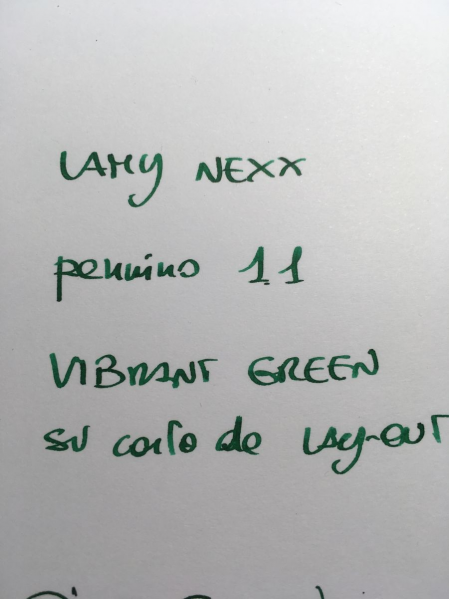 LAMY NEXX
pennino 1.1
VIBRANT GREEN
su carta da LAY-OUT